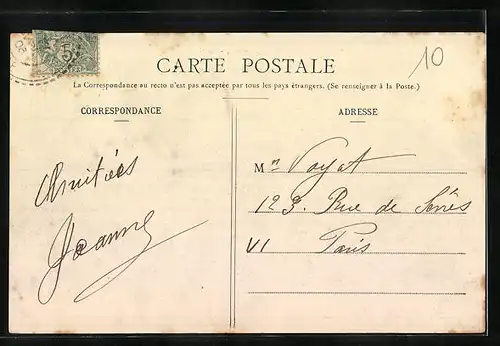 10
CARTE POSTALE
La Correspondance au recto n'est pas acceptée par tous les pays étrangers. (Se renseigner à la Poste.)
CORRESPONDANCE
ADRESSE
Amitiés
Jeanne
Mr Voyat
123. Rue de Sèvres
VI Paris